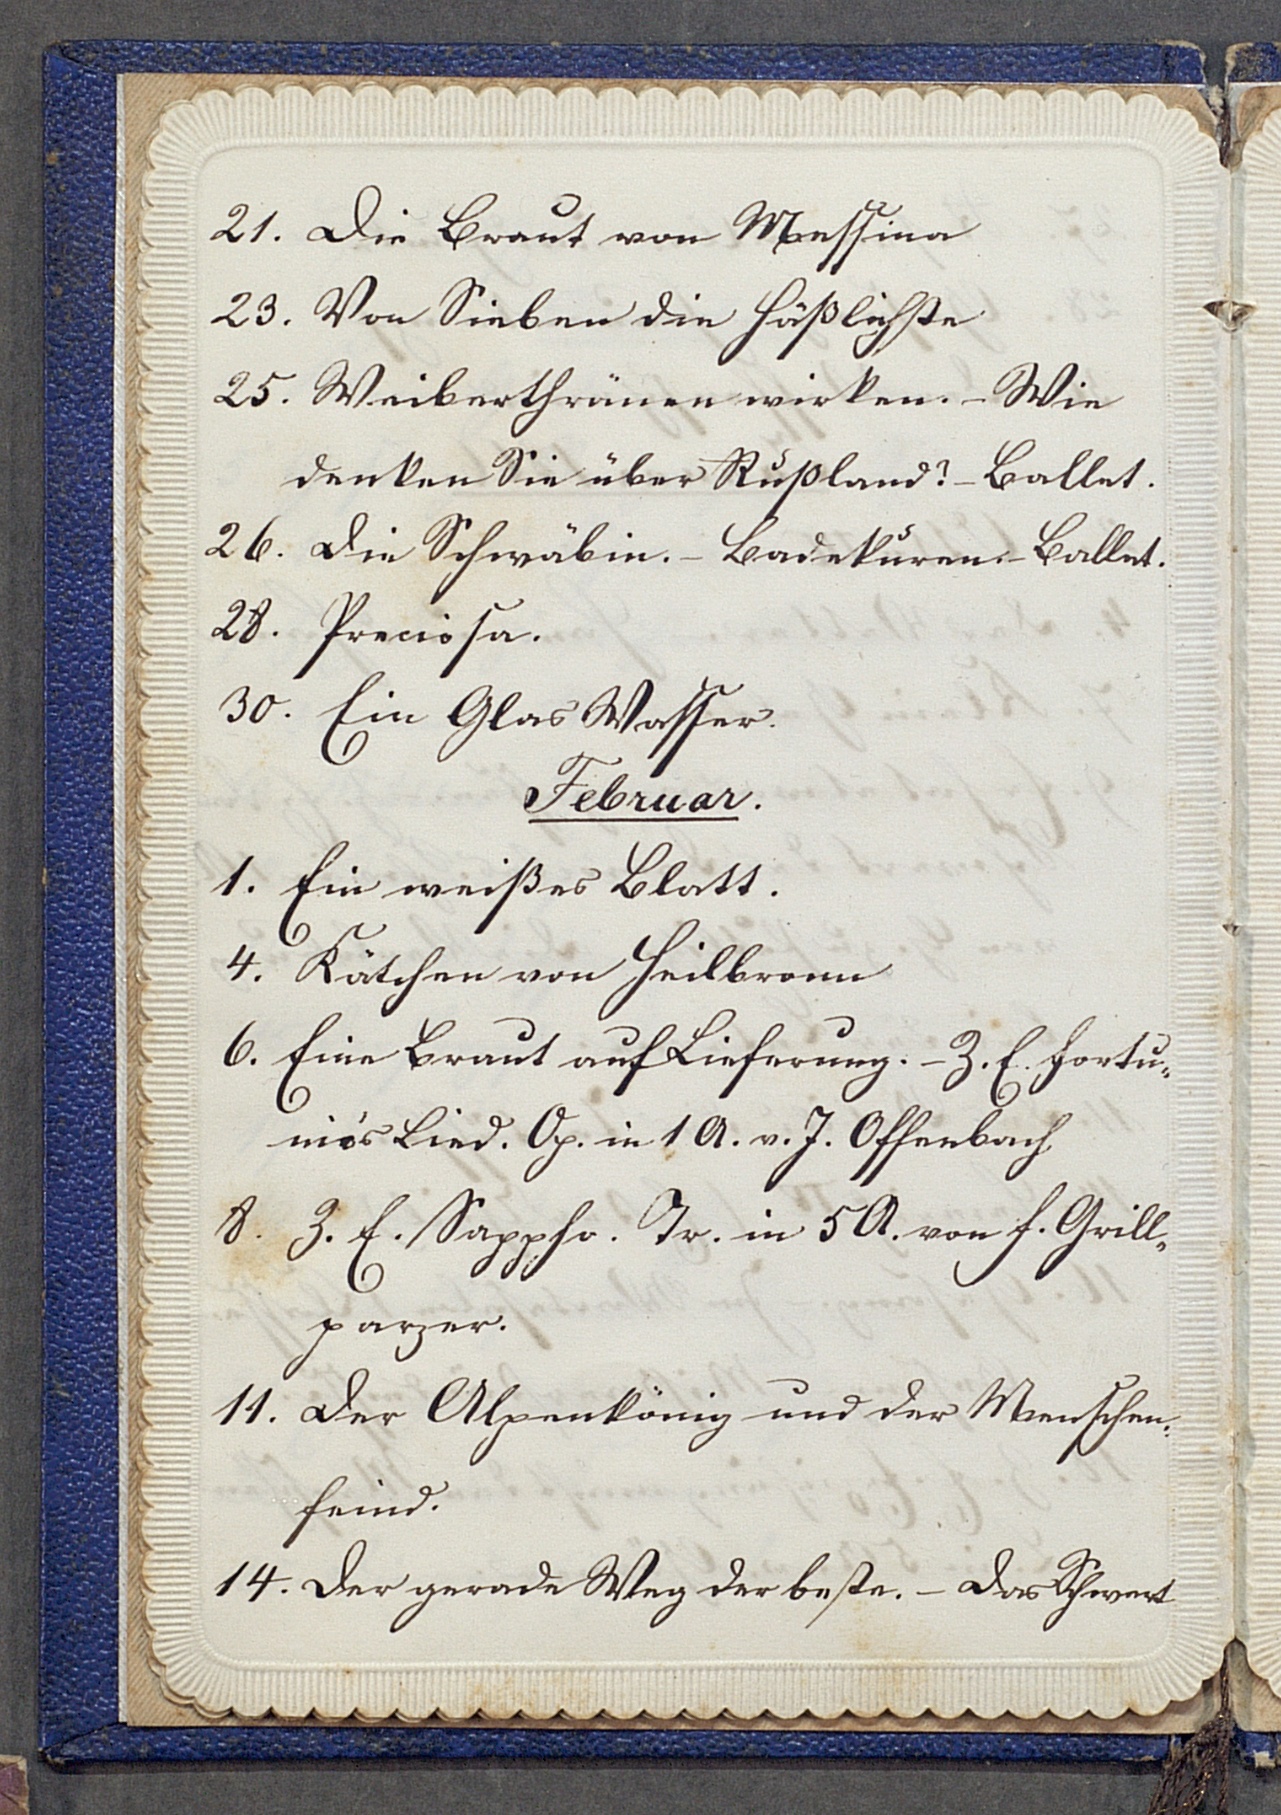 21. Die Braut von Messina
23. Von Sieben die Häßlichste
25. Weiberthränen wirken. – Wie
denken Sie über Rußland? – Ballet.
26. Die Schwäbin. – Badekuren. – Ballet.
28. Preciosa.
30. Ein Glas Wasser.
Februar.
1. Ein weißes Blatt.
4. Kätchen von Heilbronn
6. Eine Braut auf Lieferung. – Z. E. Fortu-
nio's Lied. Op. in 1 A. v. J. Offenbach
8. Z. E. Sappho. Tr. in 5 A. von F. Grill-
parzer.
11. Der Alpenkönig und der Menschen-
feind.
14. Der gerade Weg der beste. – Das Schwert